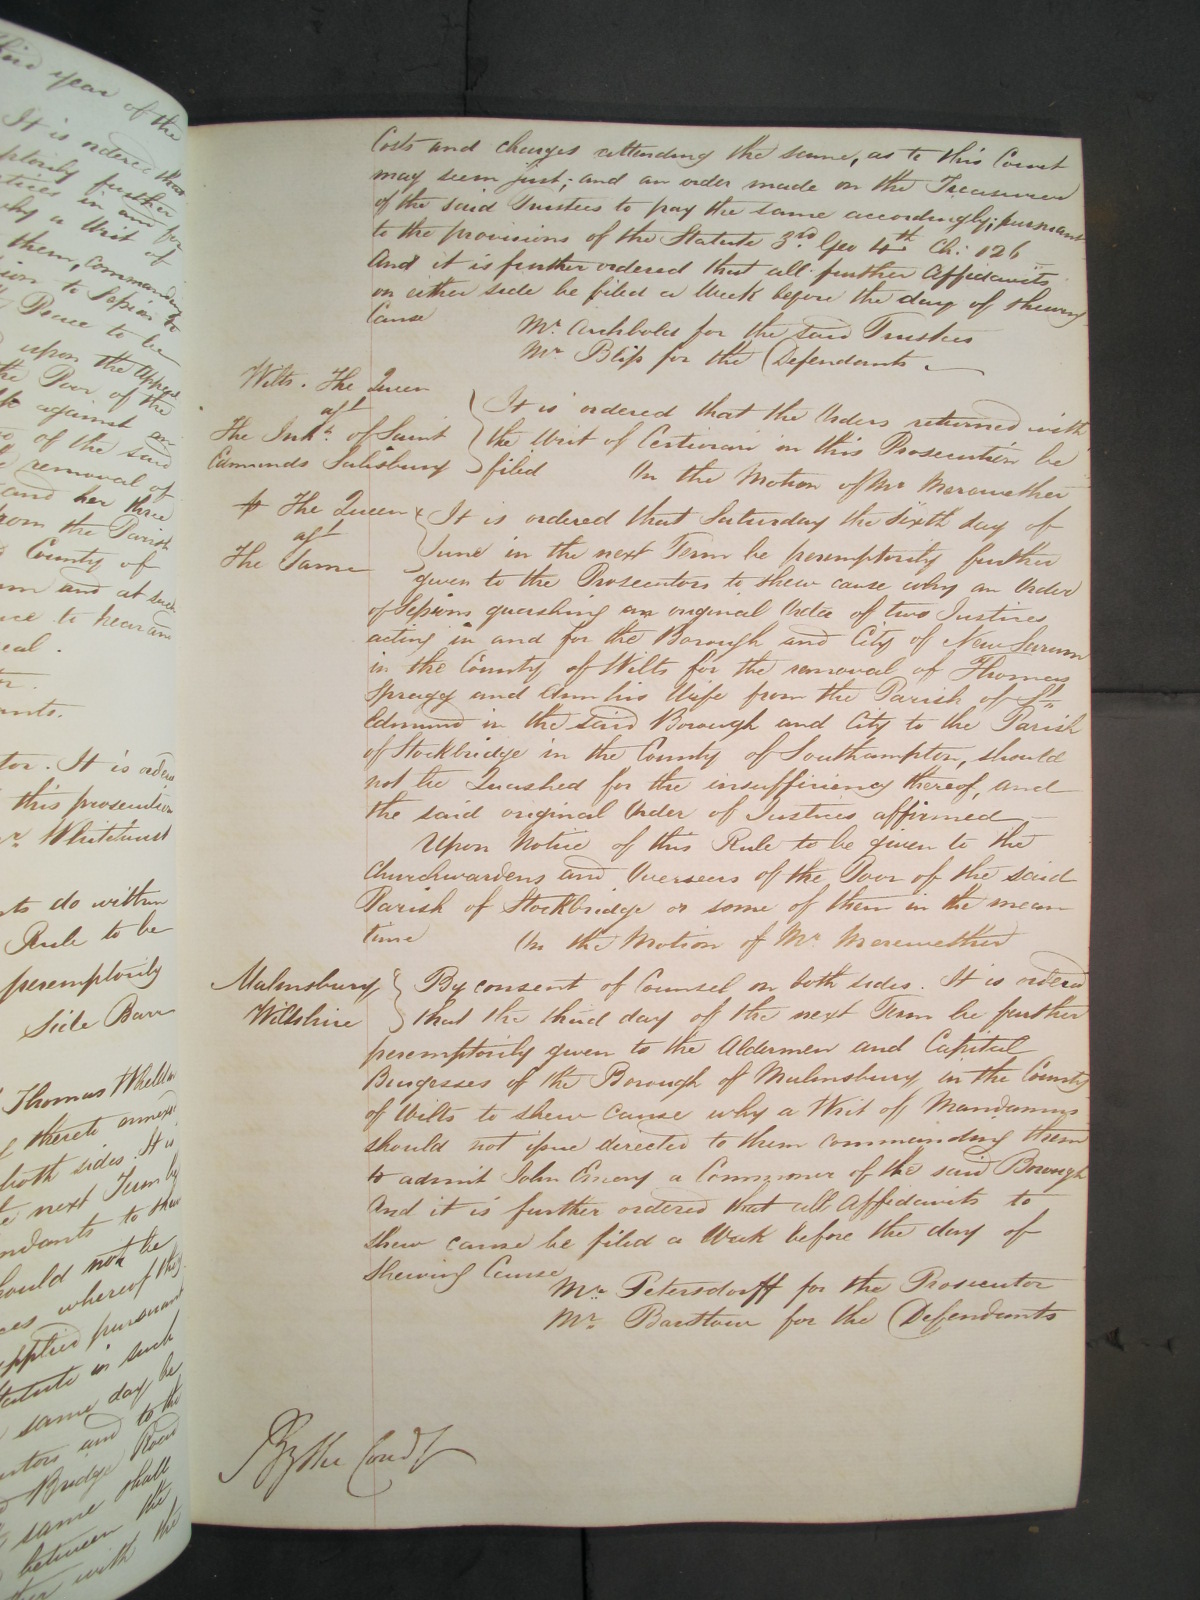 third year of the
It is ordered that
peremptorily further
Justices in and for
why a Writ of
them, commanding
Peace to be
upon the Appeal
the Poor of the
against an
of the said
removal of
and her three
from the Parish
County of
and at such
to hear and
It is ordered
this prosecution
Mr. Whitehurst
do within
Rule to be
peremptorily
Side Bar
Thomas Wheldon
thereto annexed
both sides. It is
next Term be
Defendants to shew
should not be
whereof they
applied pursuant
Statute in such
same day be
and to the
Bridge Road
same shall
between the
with the
Costs and charges attending the same, as to this Court
may seem just; and an order made on the Treasurer
of the said Trustees to pay the same accordingly; pursuant
to the provisions of the Statute 3rd Geo 4th Ch: 126
And it is further ordered that all further Affidavits
on either side be filed a Week before the day of shewing
Cause
Mr. Archbold for the said Trustees
Mr Bliss for the Defendants
Wilts. The Queen
agt
The Inhts. of Saint
Edmunds Salisbury
It is ordered that the Orders returned with
the Writ of Certiorari in this Prosecution be
filed On the Motion of Mr Merewether
The Queen
agt
The Same
It is ordered that Saturday the sixth day of
June in the next Term be peremptorily further
given to the Prosecutors to shew cause why an Order
of Sessions quashing an original Order of two Justices
acting in and for the Borough and City of New Sarum
in the County of Wilts for the removal of Thomas
Spragg and Ann his Wife from the Parish of St.
Edmund in the said Borough and City to the Parish
of Stockbridge in the County of Southampton, should
not be Quashed for the insufficiency thereof, and
the said original Order of Justices affirmed
Upon Notice of this Rule to be given to the
Churchwardens and Overseers of the Poor of the said
Parish of Stockbridge or some of them in the mean
time On the Motion of Mr. Merewether
Malmsbury
Wiltshire
By consent of Counsel on both sides. It is ordered
that the third day of the next Term be further
peremptorily given to the Aldermen and Capital
Burgesses of the Borough of Malmsbury in the County
of Wilts to shew cause why a Writ of Mandamus
should not issue directed to them commanding them
to admit John Emery a Commoner of the said Borough
And it is further ordered that all Affidavits to
shew cause be filed a Week before the day of
shewing Cause
Mr. Petersdorff for the Prosecutor
Mr. Barstow for the Defendants
By the Court